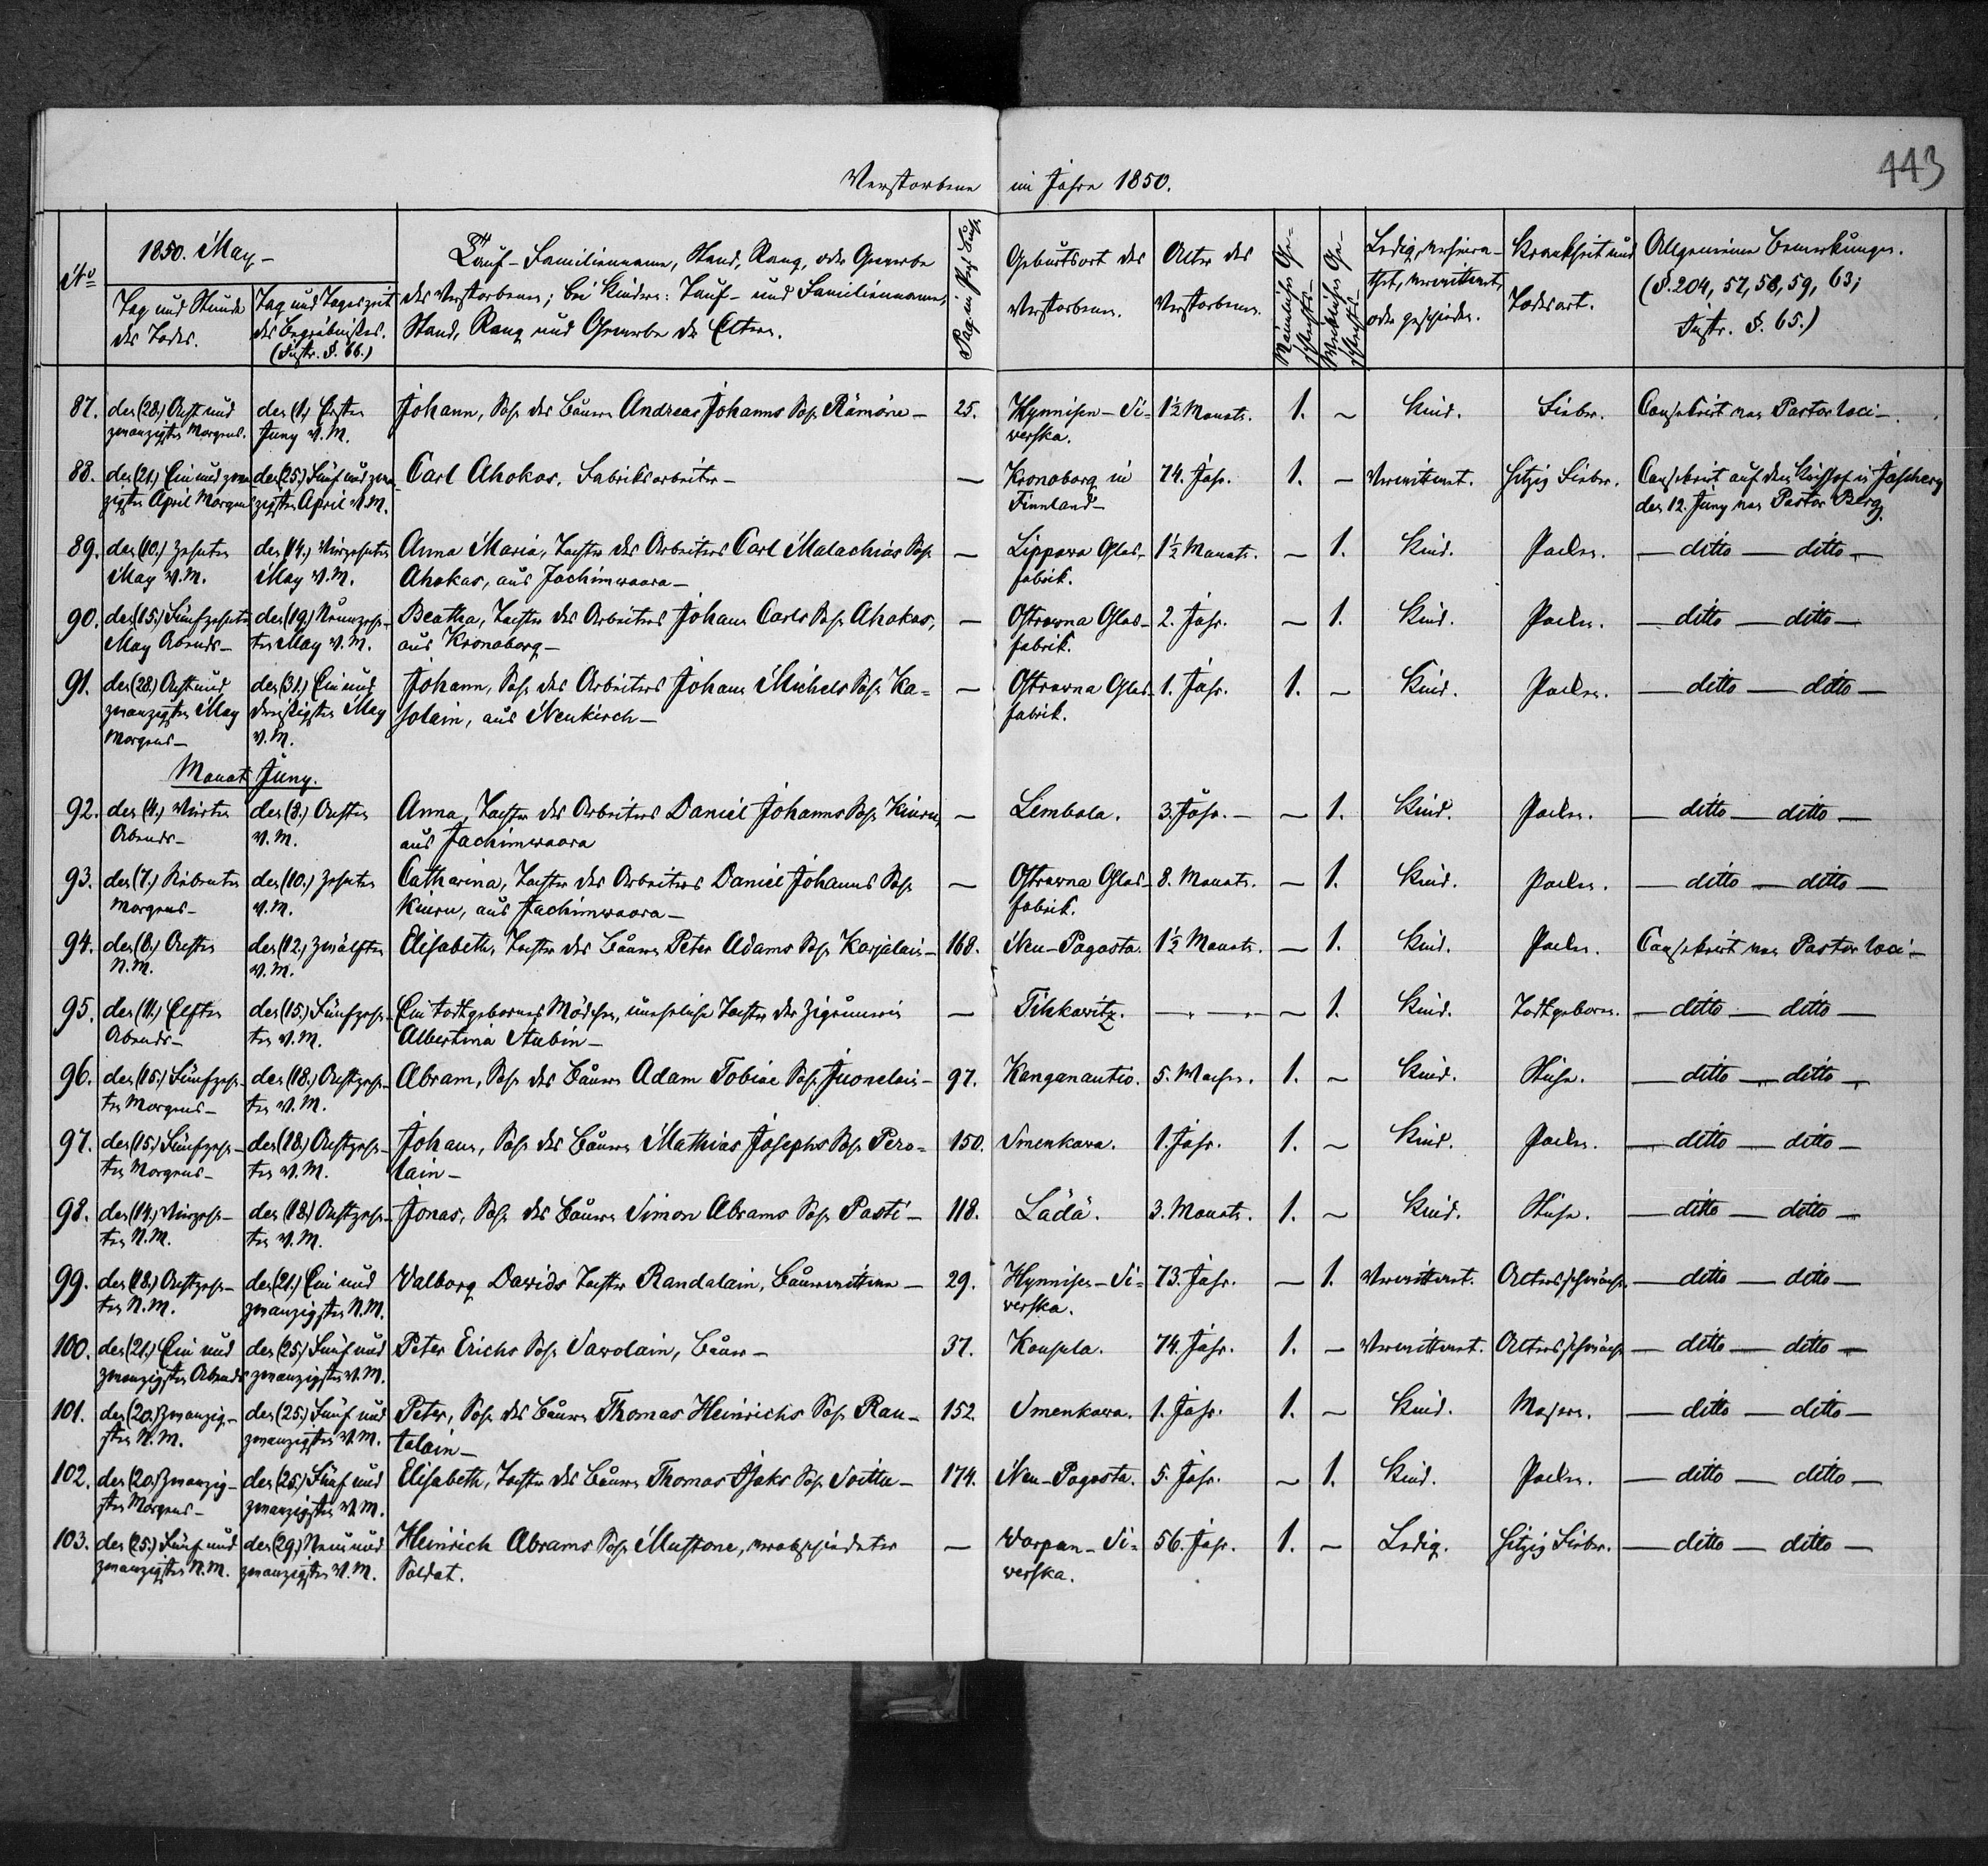 443
Verstorbene im Jahre 1850.
No
1850. May
Tag und Stunde des Todes.
Tag und Tageszeit des Begräbnisses. (Instr. §. 66.)
Tauf- Familienname, Stand, Rang, oder Gewerbe des Verstorbenen; bei Kindern: Tauf- und Familienname, Stand, Rang und Gewerbe der Eltern.
Pag. im Pers. Buch.
Geburtsort des Verstorbenen.
Alter des Verstorbenen.
Männliches Geschlecht.
Weibliches Geschlecht.
Ledig, verheirathet, verwittwet, oder geschieden.
Krankheit und Todesart.
Allgemeine Bemerkungen. (§. 204, 57, 58, 59, 63; Instr. §. 65.)
87. den (28.) Acht und zwanzigsten Morgens. den (1.) Ersten Juny V.M. Johann, Sohn des Bauern Andreas Johanns Sohn Rämöne – 25. Hynnisen-Siwerska. 1½ Monate. 1. – Kind. Fieber. Consekrirt von Pastor loci –
88. den (21.) Ein und zwanzigsten April Morgens den (25.) Fünf und zwanzigsten April V.M. Carl Ahokas. Fabriksarbeiter – — Kronoborg in Finnland – 74. Jahr. 1. – Verwittwet. Hitzig Fieber. Consekrirt auf dem Kirchhof in den 12. Juny von Pastor Berg.
89. den (10.) Zehnten May V.M. den (14.) Vierzehnten May V.M. Anna Maria, Tochter des Arbeiters Carl Malachias Sohn Ahokas, aus Jachimwaara – — Lippawa Glasfabrik. 1½ Monate. – 1. Kind. Pocken. — ditto — ditto —
90. den (15.) Fünfzehnten May Abends – den (19.) Neunzehnten May V.M. Beatha, Tochter des Arbeiters Johann Carls Sohn Ahokas, aus Kronoborg – — Ostrowna Glasfabrik. 2. Jahr. – 1. Kind. Pocken. — ditto — ditto —
91. den (28.) Acht und zwanzigsten May Morgens – den (31.) Ein und dreißigsten May V.M. Johann, Sohn des Arbeiters Johann Michels Sohn Kasolain, aus Neukirch – — Ostrowna Glasfabrik. 1. Jahr. 1. – Kind. Pocken. — ditto — ditto —
Monat Juny.
92. den (4.) Vierten Abends – den (8.) Achten V.M. Anna, Tochter des Arbeiters Daniel Johanns Sohn Kiuru, aus Jachimwaara — Lembala. 3. Jahr. – – 1. Kind. Pocken. — ditto — ditto —
93. den (7.) Siebenten Morgens – den (10.) Zehnten V.M. Catharina, Tochter des Arbeiters Daniel Johanns Sohn Kiuru, aus Jachimwaara – — Ostrowna Glasfabrik. 8. Monate. – 1. Kind. Pocken. — ditto — ditto —
94. den (8.) Achten N.M. den (12.) Zwölften V.M. Elisabeth, Tochter des Bauern Peter Adams Sohn Karjalain – 168. Neu-Pagosta. 1½ Monate. – 1. Kind. Pocken. Consekrirt von Pastor loci –
95. den (11.) Elften Abends – den (15.) Fünfzehnten V.M. Ein todtgebornes Mädchen, uneheliche Tochter der Zigeunerin Albertina Aubin – — Tihkowitz. – – 1. Kind. Todtgeboren. — ditto — ditto —
96. den (15.) Fünfzehnten Morgens – den (18.) Achtzehnten V.M. Abram, Sohn des Bauern Adam Tobiae Sohn Juonelain – 97. Kanganautio. 5. Wochen. 1. – Kind. — ditto — ditto —
97. den (15.) Fünfzehnten Morgens – den (18.) Achtzehnten V.M. Johann, Sohn des Bauern Mathias Josephs Sohn Perolain – 150. Smenkowa. 1. Jahr. 1. – Kind. Pocken. — ditto — ditto —
98. den (14.) Vierzehnten N.M. den (18.) Achtzehnten V.M. Jonas, Sohn des Bauern Simon Abrams Sohn Pasti – 118. Lädä. 3. Monate. 1. – Kind. — ditto — ditto —
99. den (18.) Achtzehnten N.M. den (21.) Ein und zwanzigsten N.M. Valborg Dawids Tochter Randalain, Bauerwittwe – 29. Hynnisen-Siwerska. 73. Jahr. – 1. Verwittwet. Altersschwäche. — ditto — ditto —
100. den (21.) Ein und zwanzigsten Abends den (25.) Fünf und zwanzigsten V.M. Peter Erichs Sohn Sawolain, Bauer – 37. 74. Jahr. 1. – Verwittwet. Altersschwäche — ditto — ditto —
101. den (20.) Zwanzigsten N.M. den (25.) Fünf und zwanzigsten V.M. Peter, Sohn des Bauern Thomas Heinrichs Sohn Rautalain – 152. Smenkowa. 1. Jahr. 1. – Kind. Masern. — ditto — ditto —
102. den (20.) Zwanzigsten Morgens – den (25.) Fünf und zwanzigsten V.M. Elisabeth, Tochter des Bauern Thomas Isaks Sohn Soittu – 174. Neu-Pagosta. 5. Jahr. – 1. Kind. Pocken. — ditto — ditto —
103. den (25.) Fünf und zwanzigsten N.M. den (29.) Neun und zwanzigsten V.M. Heinrich Abrams Sohn Mustone, verabschiedeter Soldat. — Warpan-Siwerska. 56. Jahr. 1. – Ledig. Hitzig Fieber. — ditto — ditto —